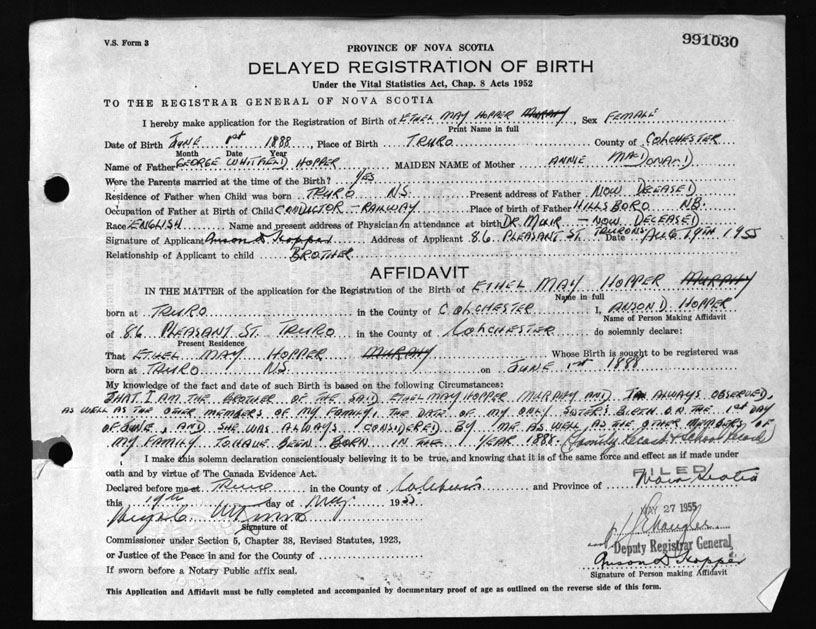 V.S. Form 3
991030
PROVINCE OF NOVA SCOTIA
DELAYED REGISTRATION OF BIRTH
Under the Vital Statistics Act, Chap. 8 Acts 1952
TO THE REGISTRAR GENERAL OF NOVA SCOTIA
I hereby make application for the Registration of Birth of ETHEL MAY HOPPER MURRAY, Sex FEMALE
Print Name in full
Date of Birth JUNE 1st 1888, Place of Birth TRURO County of COLCHESTER
Month Date Year
Name of Father GEORGE WHITFIELD HOPPER MAIDEN NAME of Mother ANNIE MACDONALD
Were the Parents married at the time of the Birth? YES
Residence of Father when Child was born TRURO N.S. Present address of Father NOW DECEASED
Occupation of Father at Birth of Child CONDUCTOR - RAILWAY Place of birth of Father HILLSBORO N.B.
Race ENGLISH Name and present address of Physician in attendance at birth DR. MUIR - NOW DECEASED
Signature of Applicant Anson D Hopper Address of Applicant 86 PLEASANT ST. TRURO NS Date 19TH 1955
Relationship of Applicant to child BROTHER
AFFIDAVIT
IN THE MATTER of the application for the Registration of the Birth of ETHEL MAY HOPPER MURRAY
Name in full
born at TRURO in the County of COLCHESTER I, ANSON D. HOPPER
Name of Person Making Affidavit
of 86 PLEASANT ST. TRURO in the County of COLCHESTER do solemnly declare:
Present Residence
That ETHEL MAY HOPPER MURRAY Whose Birth is sought to be registered was
born at TRURO N.S. on JUNE 1st 1888
My knowledge of the fact and date of such Birth is based on the following Circumstances:
THAT I AM THE BROTHER OF THE SAID ETHEL MAY HOPPER MURRAY AND I ALWAYS OBSERVED,
AS WELL AS THE OTHER MEMBERS OF MY FAMILY, THE DATE OF MY ONLY SISTER'S BIRTH ON THE 1st DAY
OF JUNE, AND SHE WAS ALWAYS CONSIDERED BY ME AS WELL AS THE OTHER MEMBERS OF
MY FAMILY TO HAVE BEEN BORN IN THE YEAR 1888. (Family Record & School Record)
I make this solemn declaration conscientiously believing it to be true, and knowing that it is of the same force and effect as if made under
oath and by virtue of The Canada Evidence Act.
FILED
Declared before me at Truro in the County of Colchester and Province of Nova Scotia
this 19th day of May 1955
MAY 27 1955
Signature of
Commissioner under Section 5, Chapter 38, Revised Statutes, 1923,
Deputy Registrar General
or Justice of the Peace in and for the County of
Anson D Hopper
If sworn before a Notary Public affix seal.
Signature of Person making Affidavit
This Application and Affidavit must be fully completed and accompanied by documentary proof of age as outlined on the reverse side of this form.